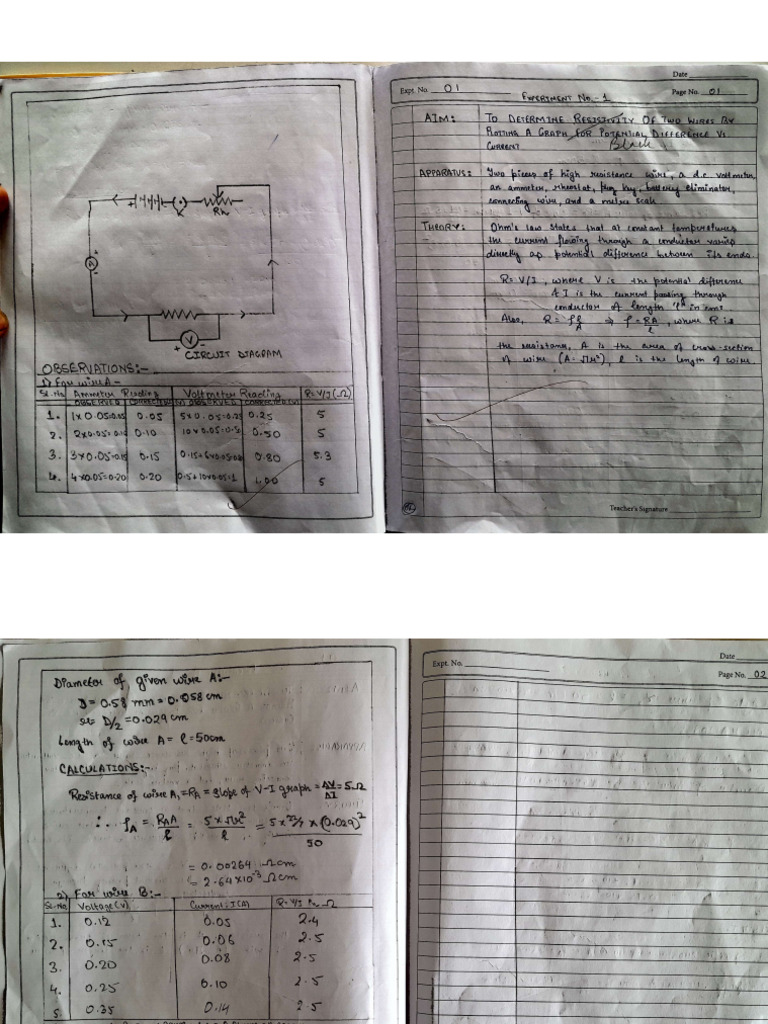 Date
Expt. No. 01
Page No. 01
EXPERIMENT NO.-1
AIM: TO DETERMINE RESISTIVITY OF TWO WIRES BY
PLOTTING A GRAPH FOR POTENTIAL DIFFERENCE VS
CURRENT Black
APPARATUS: Two pieces of high resistance wire, a d.c. voltmeter,
an ammeter, rheostat, plug key, battery eliminator,
connecting wire, and a metre scale
THEORY: Ohm's law states that at constant temperatures
the current flowing through a conductor varies
directly as potential difference between its ends.
R=V/I, where V is the potential difference
& I is the current passing through
conductor of length 'l' in cms
Also, R = ρl/A ⇒ ρ = RA/l, where R is
the resistance, A is the area of cross-section
of wire (A=πr²), l is the length of wire
Teacher's Signature
+ -
K
Rh
A
V
+ -
CIRCUIT DIAGRAM
OBSERVATIONS:-
1) For wire A-
Sl.No Ammeter Reading Voltmeter Reading R=V/I(Ω)
OBSERVED CORRECTED OBSERVED CORRECTED
1. 1x0.05=0.05 0.05 5x0.05=0.25 0.25 5
2. 2x0.05=0.10 0.10 10x0.05=0.5 0.50 5
3. 3x0.05=0.15 0.15 0.80 5.3
4. 4x0.05=0.20 0.20 0.5+10x0.05=1 1.00 5
Diameter of given wire A:-
D=0.58 mm=0.058cm
r= D/2 =0.029 cm
Length of wire A= l=50cm
CALCULATIONS:-
Resistance of wire A,=RA = slope of V-I graph = ΔV/ΔI = 5Ω
∴ ρA = RAA/l = 5xπr²/l = 5x22/7x(0.029)²/50
= 0.00264 Ωcm
= 2.64x10⁻³ Ωcm
2) For wire B:-
Sl.No Voltage(V) Current=I(A) R=V/I Ω
1. 0.12 0.05 2.4
2. 0.15 0.06 2.5
3. 0.20 0.08 2.5
4. 0.25 0.10 2.5
5 0.35 0.14 2.5
Expt. No.
Date
Page No. 02